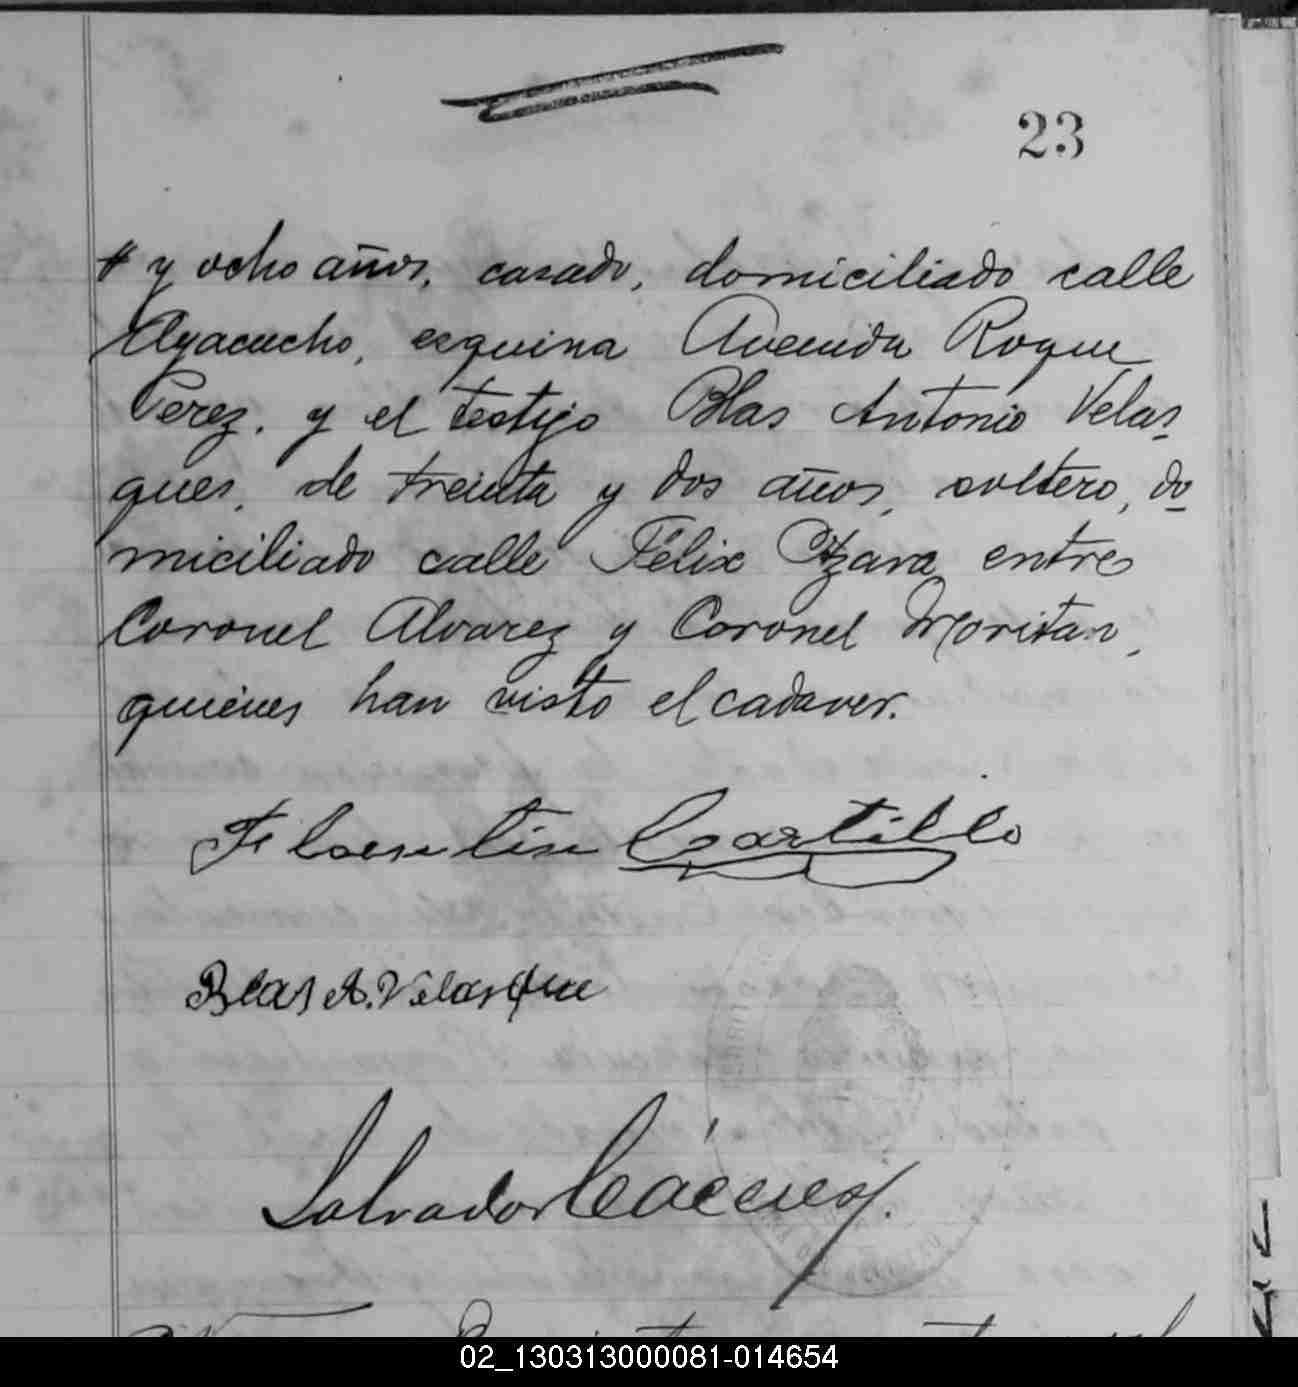 23
# y ocho años, casado, domiciliado calle
Ayacucho, esquina Avenida Roque
Perez, y el testigo Blas Antonio Velas
ques, de treinta y dos años, soltero, do
miciliado calle Félix Azara entre
Coronel Alvarez y Coronel Moritan,
quienes han visto el cadaver.
Florentin Castillo
Blas A. Velasque
Salvador Cáceres.
02_130313000081-014654